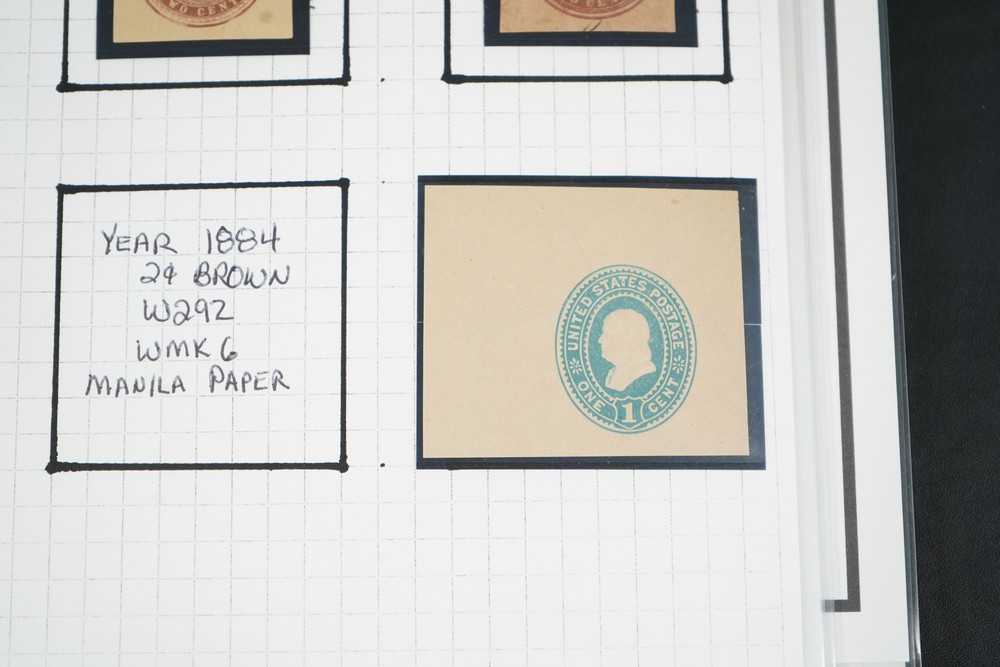 TWO CENT
YEAR 1884
2¢ BROWN
W292
WMK 6
MANILA PAPER
UNITED STATES POSTAGE
ONE 1 CENT